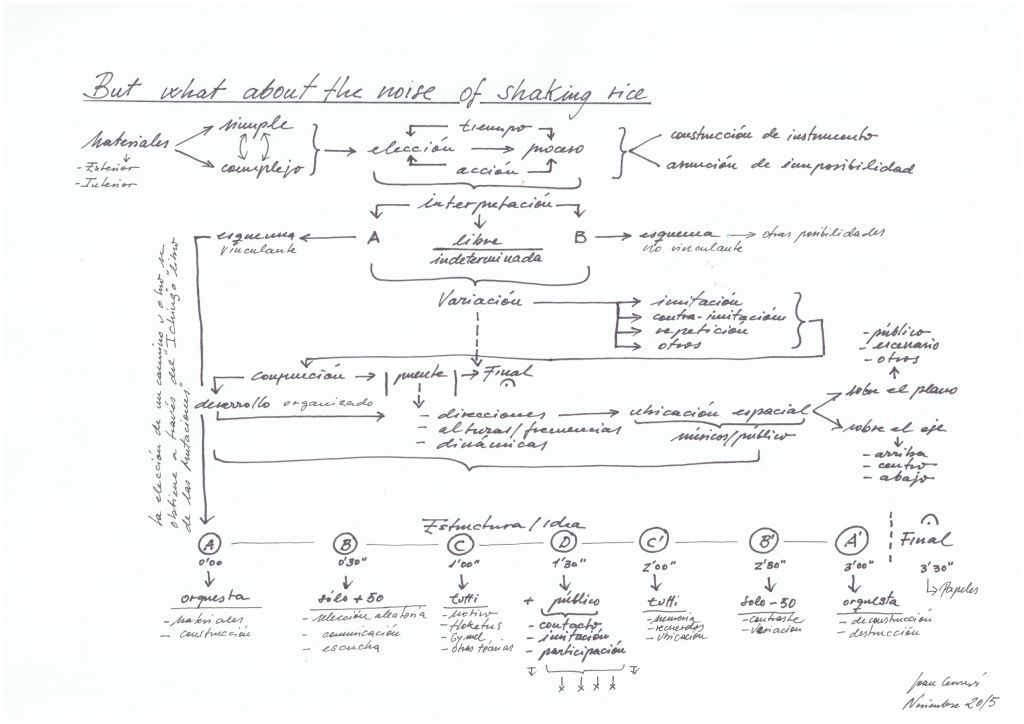 But what about the noise of shaking rice
Materiales
- Exterior
- Interior
simple
complejo
tiempo
elección
proceso
acción
construcción de instrumento
asunción de imposibilidad
interpretación
A
libre
indeterminada
B
esquema
vinculante
esquema
no vinculante
otras posibilidades
La elección de un camino y otro se
obtiene a través del "I ching" "libro
de las mutaciones"
Variación
imitación
contra-imitación
repetición
otros
conjunción
puente
Final
desarrollo organizado
- direcciones
- alturas/frecuencias
- dinámicas
ubicación espacial
músicos/público
- público
- escenario
- otros
sobre el plano
sobre el eje
- arriba
- centro
- abajo
Estructura/Idea
A
B
C
D
C'
B'
A'
Final
0'00
0'30"
1'00"
1'30"
2'00"
2'30"
3'00"
3'30"
Papeles
orquesta
- Materiales
- construcción
sólo +50
- selección aleatoria
- comunicación
- escucha
tutti
- Motivo
- Hoketus
- Gymel
- Otras técnicas
+ público
- contacto
- imitación
- participación
tutti
- memoria
- recuerdos
- ubicación
solo -50
- contraste
- variación
orquesta
- deconstrucción
- destrucción
Joan
2015